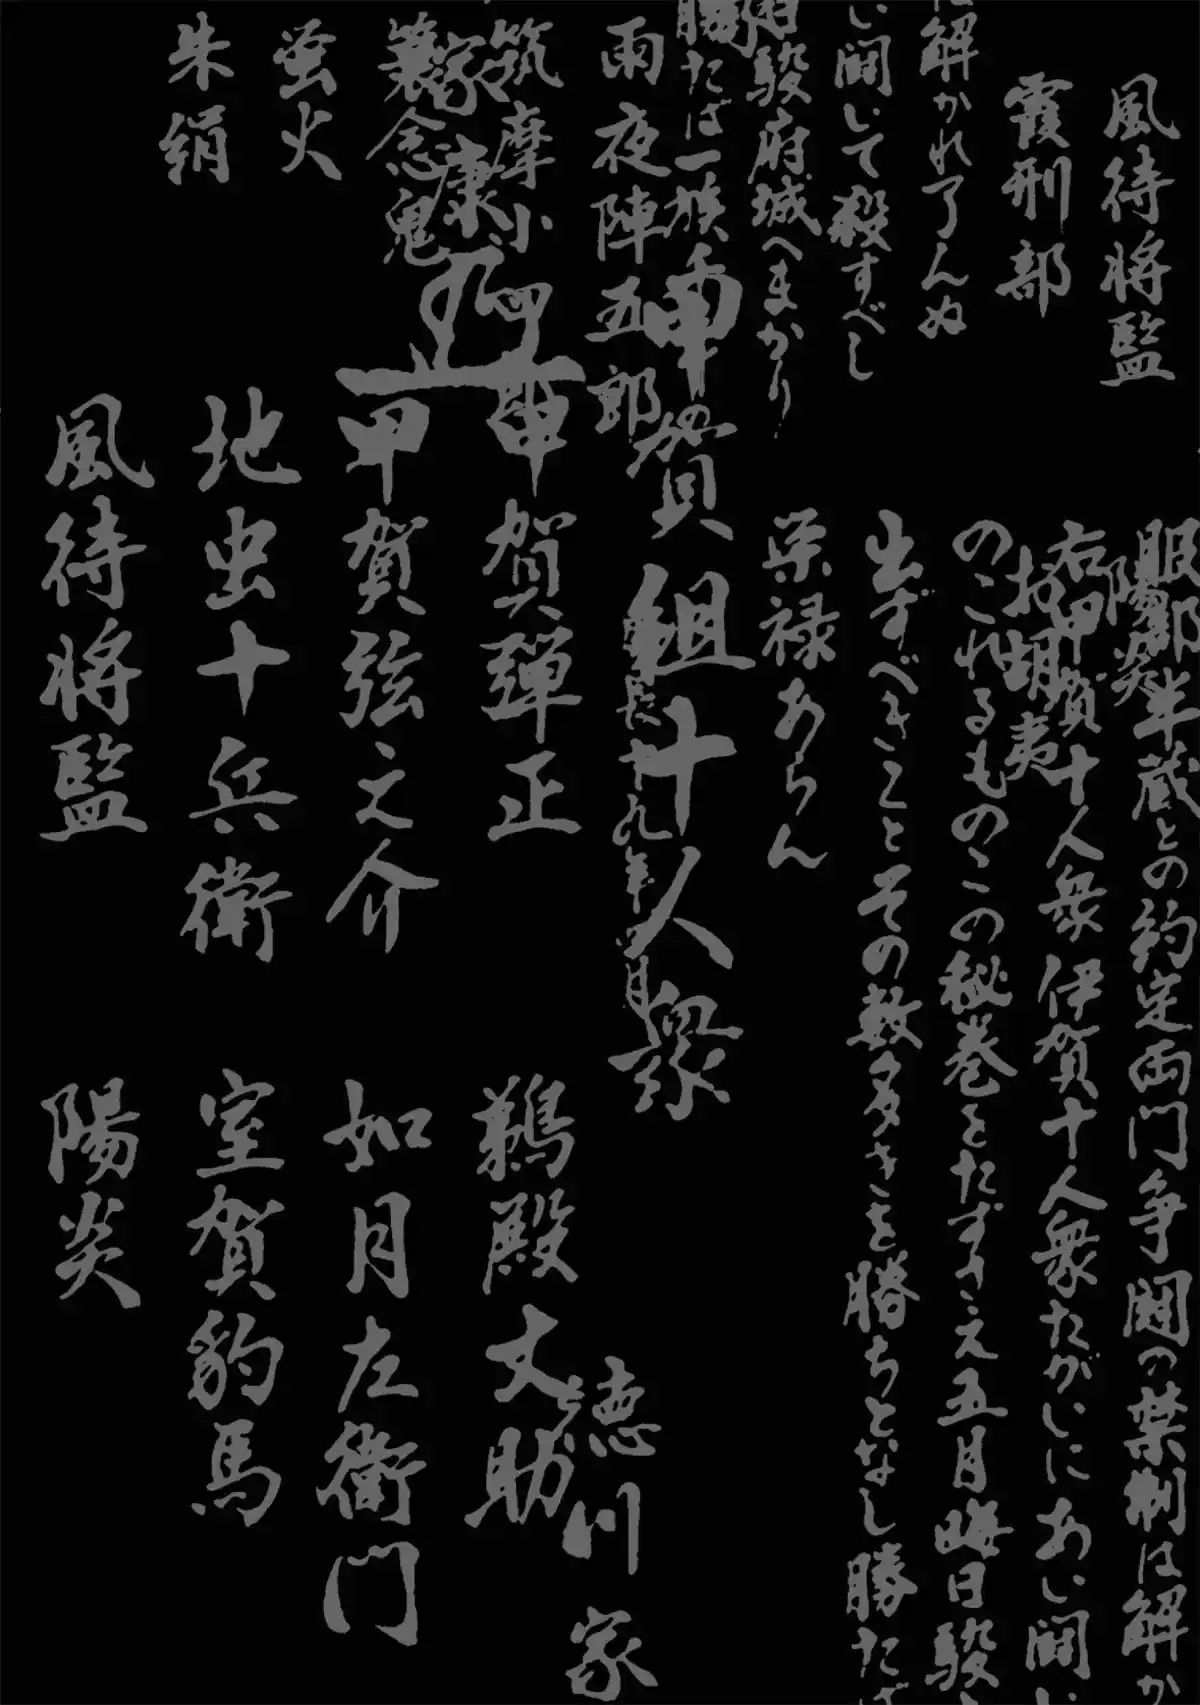 風待将監
霞刑部
に解かれ了んぬ
い闘いて殺すべし
日駿府城へまかり
勝たば一族
雨夜陣五郎
筑摩小四郎
蓑念鬼
蛍火
朱絹
服部半蔵との約定両門争闘の禁制は解か
陽炎
右甲賀十人衆伊賀十人衆たがいにあい闘い
お胡夷
のこれるものこの秘巻をたずさえ五月晦日駿
出ずべきことその数多きを勝ちとなし勝たば
栄禄あらん
甲賀組十人衆
慶長十九年四月
徳川家
家康
甲賀弾正
甲賀弦之介
地虫十兵衛
風待将監
鵜殿丈助
如月左衛門
室賀豹馬
陽炎